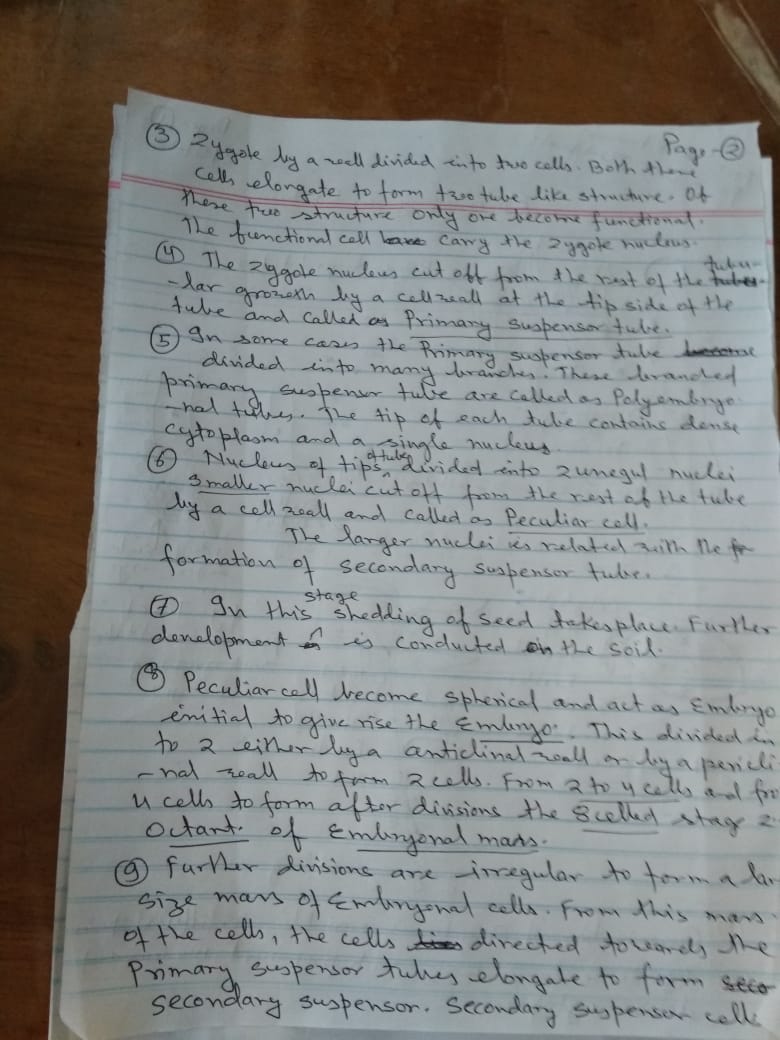 Page-②
③ Zygote by a wall divided into two cells. Both these
cells elongate to form two tube like structure. Of
these two structure only one become functional.
The functional cell carry the zygote nucleus.
④ The zygote nucleus cut off from the rest of the tubu-
-lar growth by a cell wall at the tip side of the
tube and called as Primary suspensor tube.
⑤ In some cases the Primary suspensor tube
divided into many branches. These branded
primary suspensor tube are called as Polyembryo-
-nal tubes. The tip of each tube contains dense
cytoplasm and a single nucleus.
⑥ Nucleus of tips of tube divided into 2 unequl nuclei
smaller nuclei cut off from the rest of the tube
by a cell wall and called as Peculiar cell.
The larger nuclei is related with the
formation of secondary suspensor tube.
⑦ In this stage shedding of seed takes place. Further
development is conducted on the soil.
⑧ Peculiar cell become spherical and act as Embryo
initial to give rise the Embryo. This divided in
to 2 either by a anticlinal wall or by a pericli
-nal wall to form 2 cells. From 2 to 4 cells and fro
4 cells to form after divisions the 8 celled stage
Octant. of Embryonal mass.
⑨ Further divisions are irregular to form a lar
size mass of Embryonal cells. From this mass
of the cells, the cells directed towards the
Primary suspensor tubes elongate to form
secondary suspensor. Secondary suspensor cells